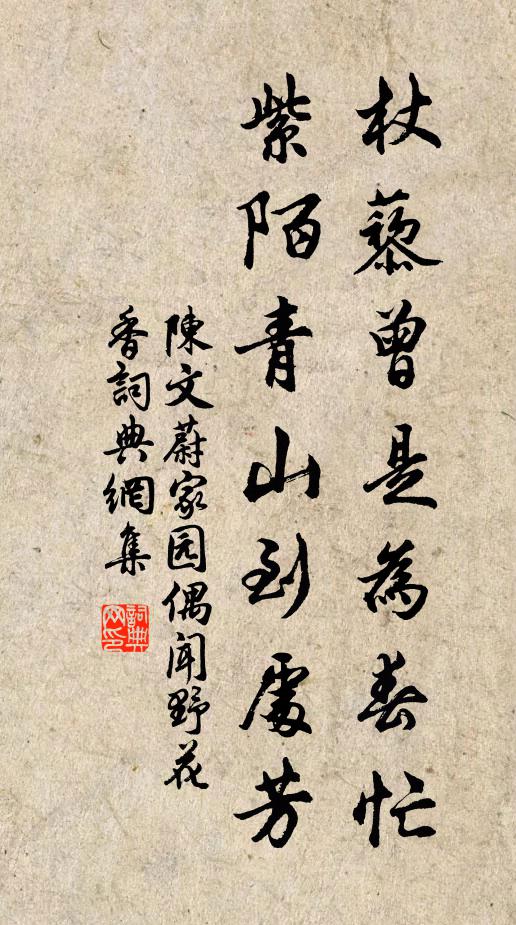 杖藜曾是為春忙
紫陌青山到處芳
陳文蔚家园偶闻野花
香詞典網集
詞典
网印